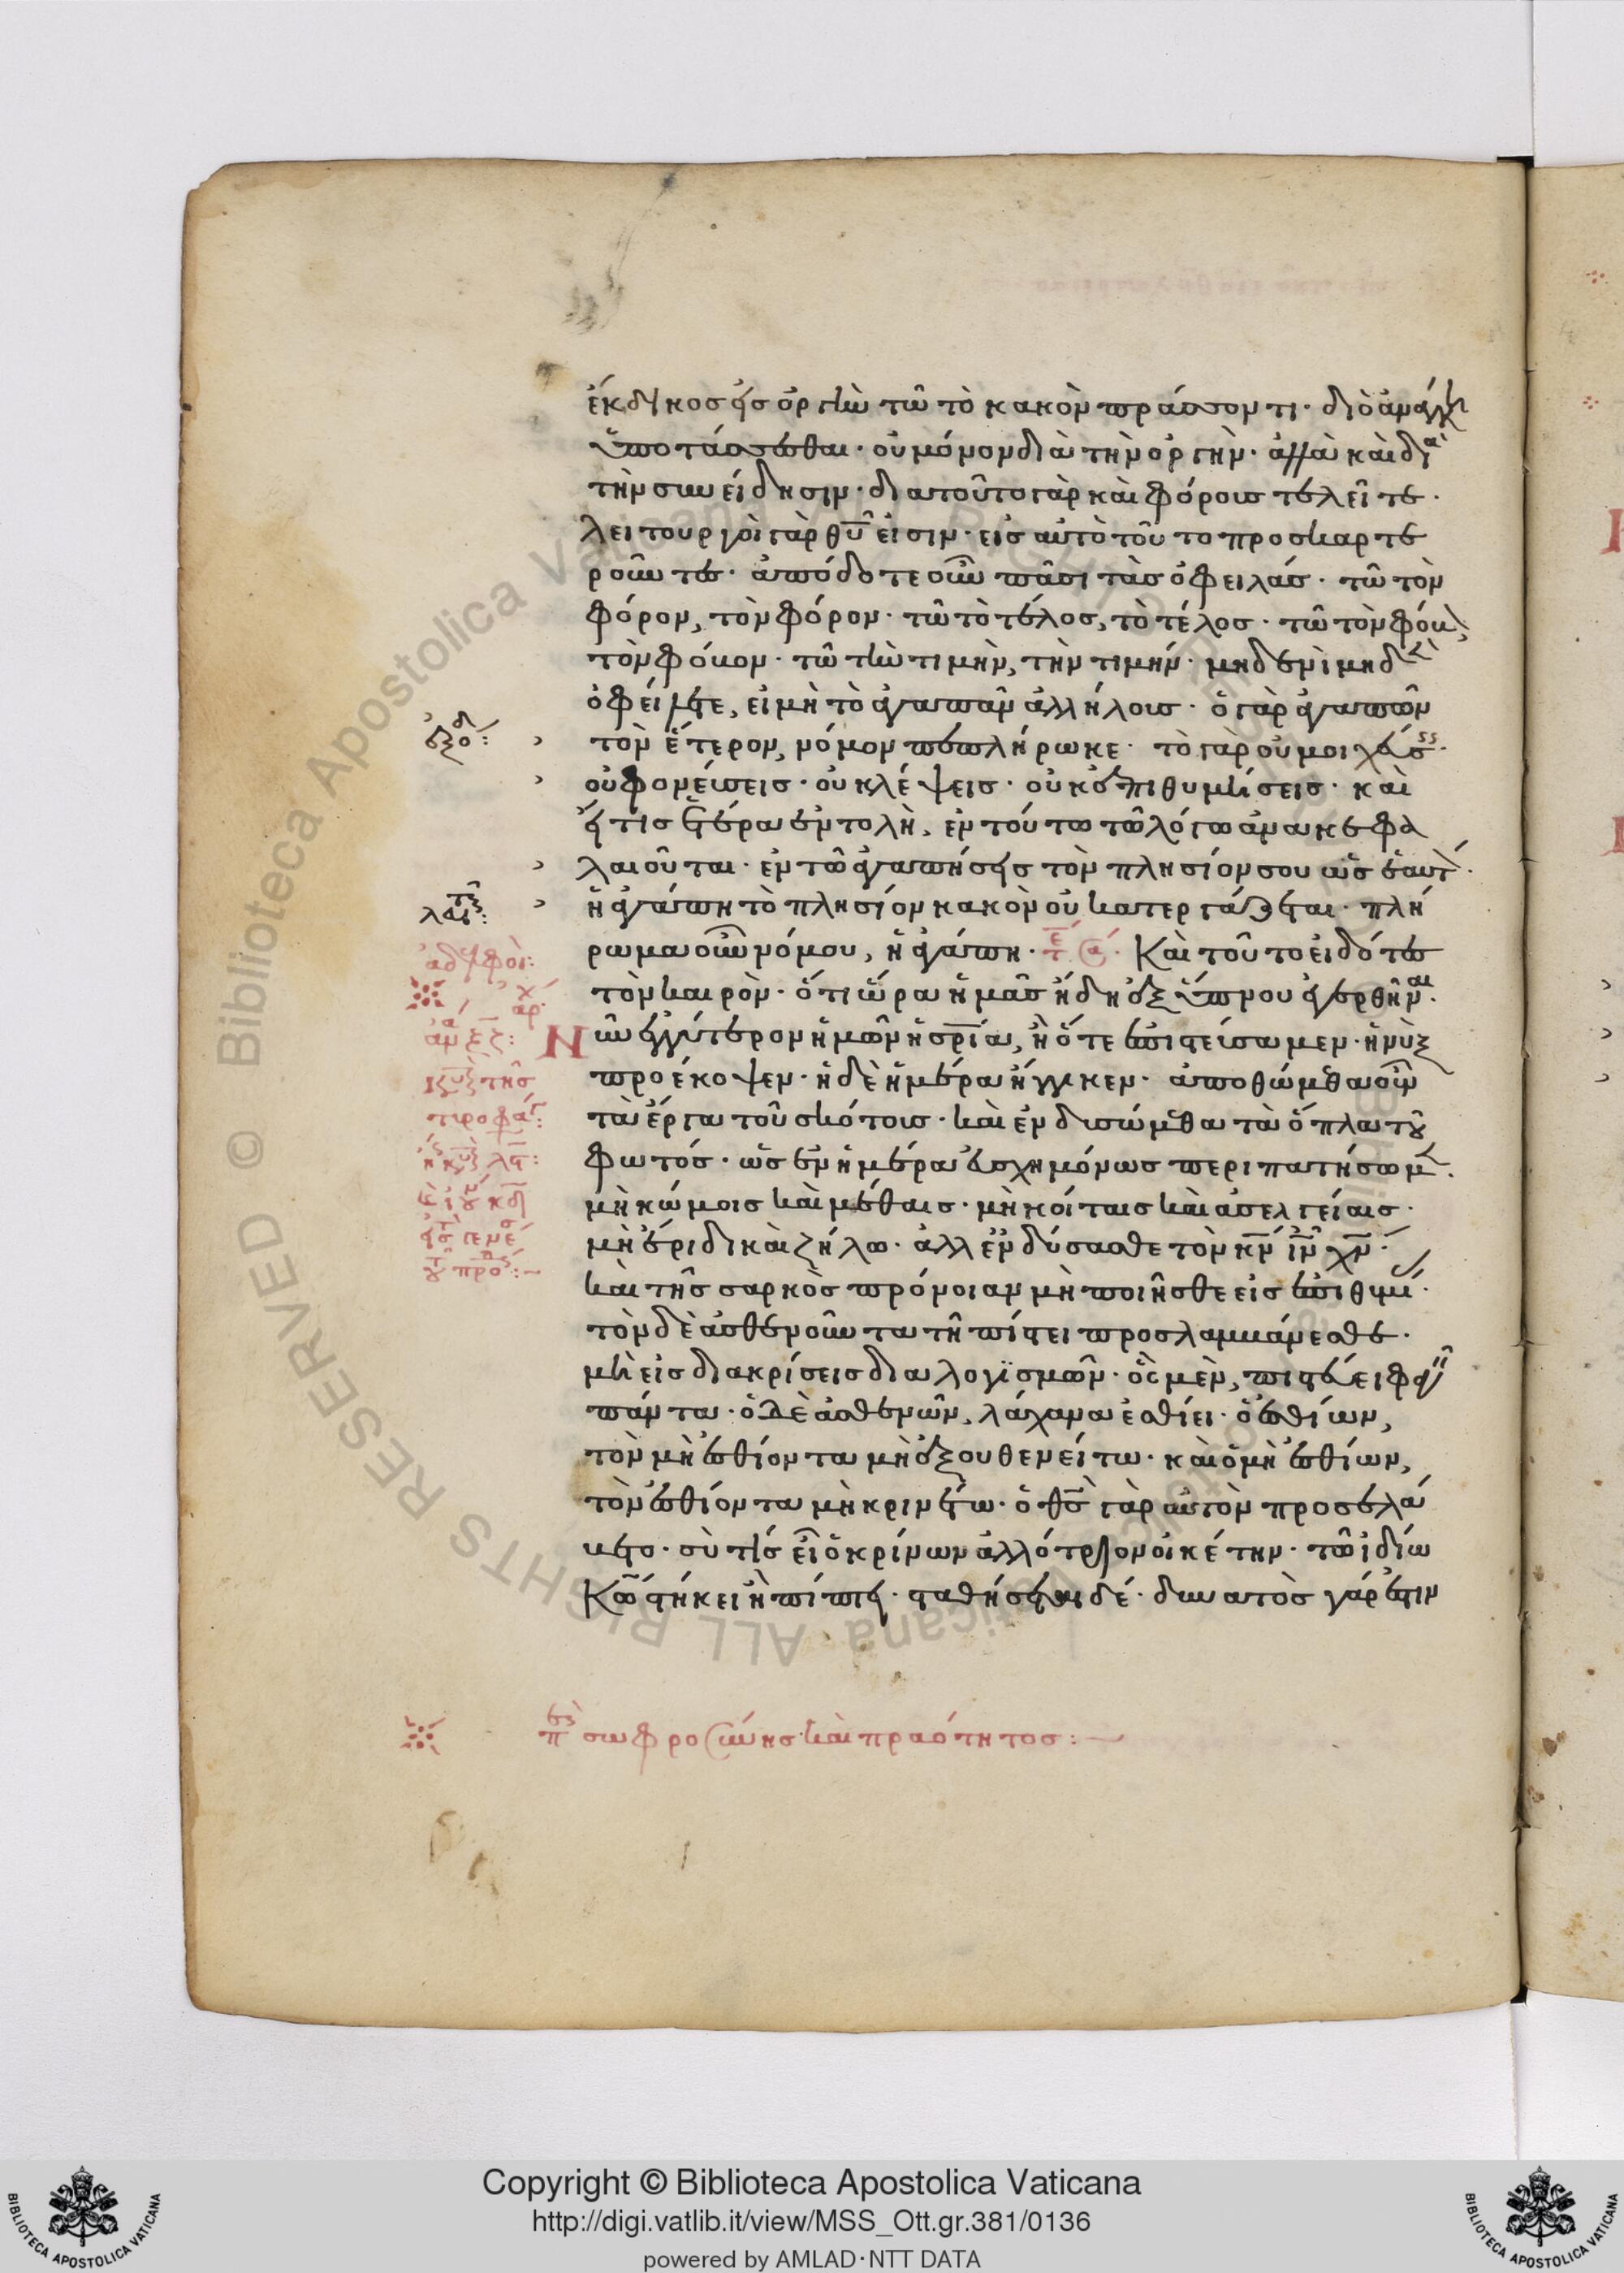 ἔκδικος εἰς ὀργὴν τῶ τὸ κακὸν πράσσοντι· διὸ ἀνάγκη
ὑποτάσσεσθαι· οὐ μόνον διὰ τὴν ὀργὴν· ἀλλὰ καὶ διὰ
τὴν συνείδησιν· διατοῦτο γὰρ καὶ φόρους τελεῖτε·
λειτουργοὶ γὰρ θυ εἰσιν· εἰς αὐτὸ τοῦτο προσκαρτε
ροῦντες· ἀπόδοτε οὖν πᾶσι τὰς ὀφειλάς· τῶ τὸν
φόρον, τὸν φόρον· τῶ τὸ τέλος, τὸ τέλος· τῶ τὸν φόβον,
τὸν φόβον· τῶ τὴν τιμὴν, τὴν τιμήν· μηδενὶ μηδὲν
ὀφείλετε, εἰ μὴ τὸ ἀγαπᾶν ἀλλήλους· ὁ γὰρ ἀγαπῶν
ἐξοδ: τὸν ἕτερον, νόμον πεπλήρωκε· τὸ γὰρ οὐ μοιχεύσεις·
οὐ φονεύσεις· οὐ κλέψεις· οὐκ ἐπιθυμήσεις· καὶ
εἴ τις ἑτέρα ἐντολὴ, ἐν τούτω τῶ λόγω ἀνακεφα
λαιοῦται· ἐν τῶ ἀγαπήσεις τὸν πλησίον σου ὡς ἑαυτόν·
λευιτ: ἡ ἀγάπη τὸ πλησίον κακὸν οὐ κατεργάζεται· πλή
ρωμα οὖν νόμου, ἡ ἀγάπη· Καὶ τοῦτο εἰδότες
ἀδελφοὶ:
τὸν καιρὸν· ὅτι ὥρα ἡμᾶς ἤδη ἐξ ὕπνου ἐγερθῆναι·
Νῦν ἐγγύτερον ἡμῶν ἡ σρία, ἢ ὅτε ἐπιστεύσαμεν· ἡ νὺξ
προέκοψεν· ἡ δὲ ἡμέρα ἤγγικεν· ἀποθώμεθα οὖν
τὰ ἔργα τοῦ σκότους· καὶ ἐνδυσώμεθα τὰ ὅπλα τοῦ
φωτός· ὡς ἐν ἡμέρα εὐσχημόνως περιπατήσωμεν·
μὴ κώμοις καὶ μέθαις· μὴ κοίταις καὶ ἀσελγείαις·
μὴ ἔριδι καὶ ζήλω· ἀλλ ἐνδύσασθε τὸν κν ιν χν·
καὶ τῆς σαρκὸς πρόνοιαν μὴ ποιῆσθε εἰς ἐπιθυμίας·
τὸν δὲ ἀσθενοῦντα τῆ πίστει προσλαμβάνεσθε·
μὴ εἰς διακρίσεις διαλογϊσμῶν· ὃς μὲν, πιστεύει φαγεῖν
πάντα· ὁ δὲ ἀσθενῶν, λάχανα ἐσθίει· ὁ ἐσθίων,
τὸν μὴ ἐσθίοντα μὴ ἐξουθενείτω· καὶ ὁ μὴ ἐσθίων,
τὸν ἐσθίοντα μὴ κρινέτω· ὁ θς γὰρ αὐτὸν προσελά
βετο· σὺ τίς εἶ ὁ κρίνων ἀλλότριον οἰκέτην· τῶ ἰδίω
Κῶ στήκει ἢ πίπτει· σταθήσεται δέ· δυνατὸς γάρ ἐστιν
περὶ σωφροσύνης καὶ πραότητος:
Copyright © Biblioteca Apostolica Vaticana
http://digi.vatlib.it/view/MSS_Ott.gr.381/0136
powered by AMLAD·NTT DATA
BIBLIOTECA APOSTOLICA VATICANA
BIBLIOTECA APOSTOLICA VATICANA